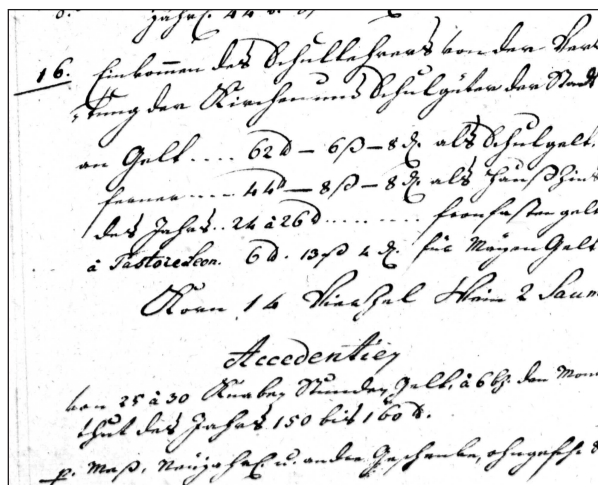 Jährl. 44
16. Einkommen des Schullehrers von der Ver
tung der Kirchen und Schulgüter der Stadt
an Gelt .... 62 d – 6 ß – 8 ₰. als Schulgelt.
ferner .... 44 d – 8 ß – 8 ₰ als Haußzins
des Jahrs .. 24 à 26 d ........ fronfasten gelt
à Pastore Leon. 6 d. 13 ß 4 ₰. für Mäyen Gelt
Korn 14 Viertzel Wein 2 Saum
Accedentien
von 25 à 30 Knaben Stunden Gelt, à 6 bz. den Mon
thut des Jahrs 150 bis 160 d.
p. Meß, Neüjahrs. u. andre Geschenke, ohngefehr